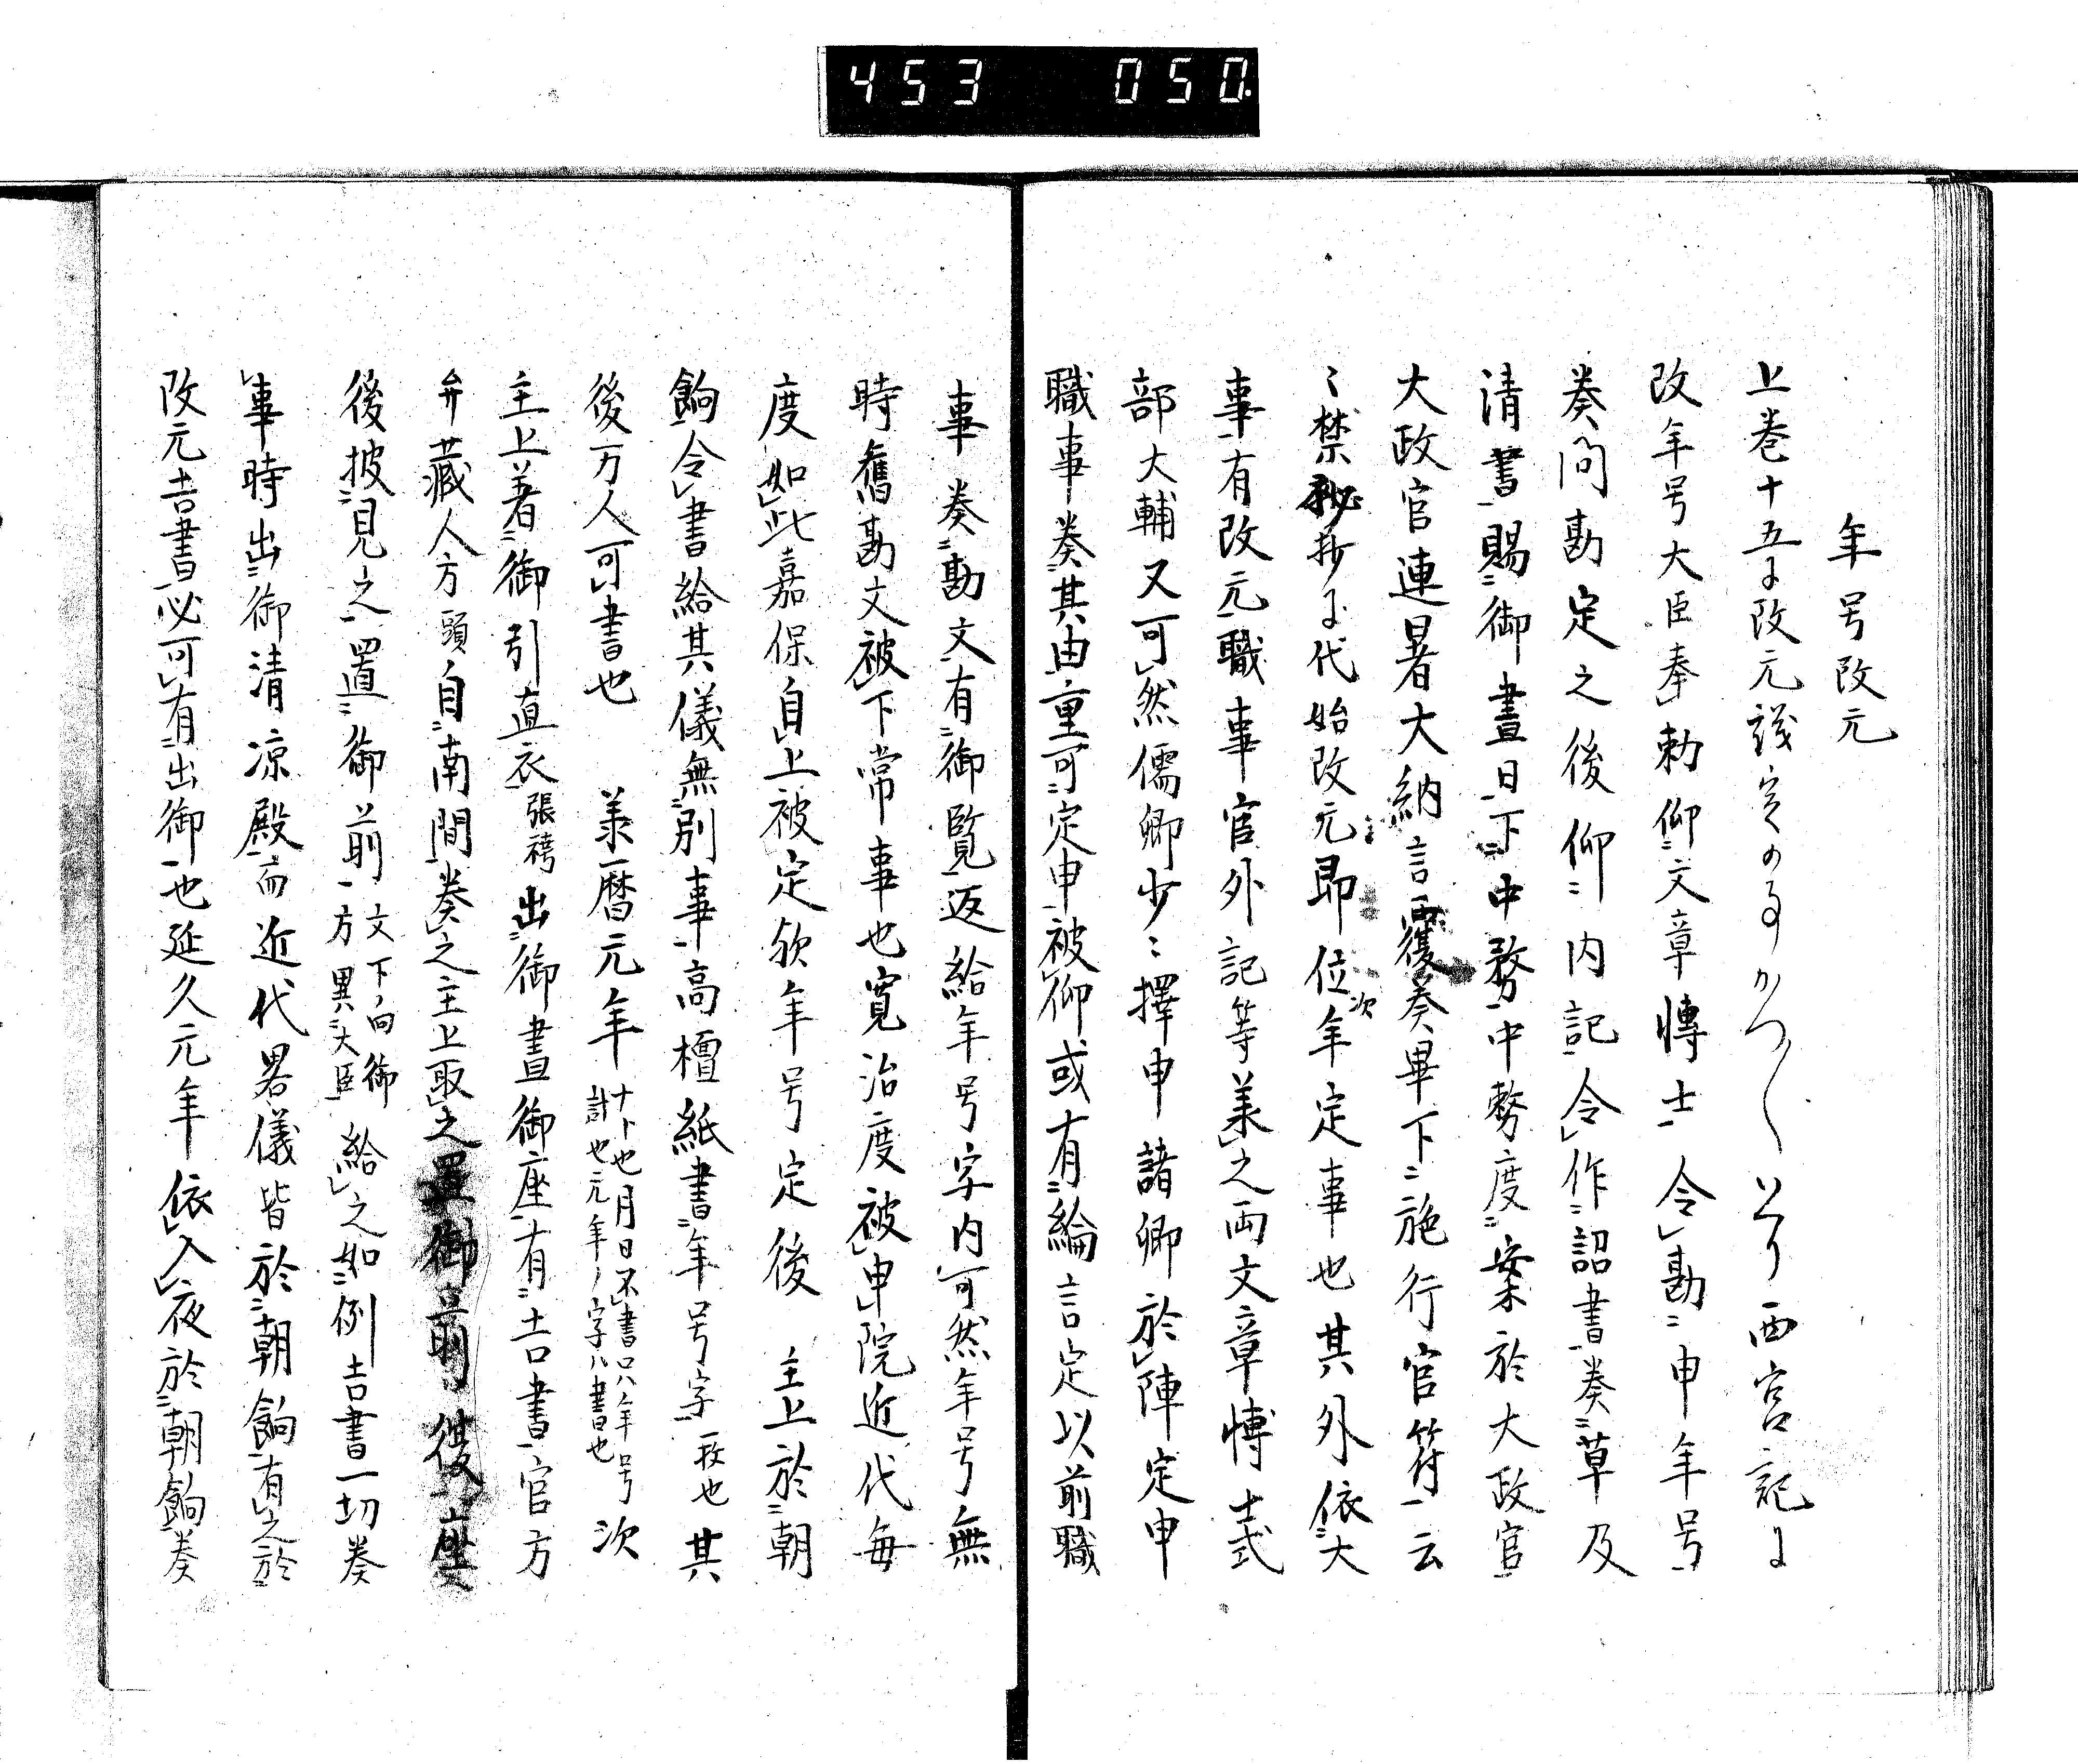 453 050
年号改元
上巻十五に改元議定の事かつ〱いへり西宮記に
改年号大臣奉勅仰文章博士令勘申年号
奏聞勘定之後仰内記令作詔書奏草及
清書賜御畫日下中務中務度案於大政官
大政官連署大納言覆奏畢下施行官符云
〻禁秘抄に代始改元即位次年定事也其外依大
事有改元職事官外記等羕之両文章博士式
部大輔又可然儒卿少〻擇申諸卿於陣定申
職事奏其由重可定申被仰或有綸言定以前職
事奏勘文有御覧返給年号字内可然年号無
時舊勘文被下常事也寛治度被申院近代毎
度如此嘉保自上被定欤年号定後 主上於朝
餉令書給其儀無別事高檀紙書年号字一枚也其
後万人可書也 羕暦元年十ト也月日不書只年号計也元年ノ字ハ書也次
主上著御引直衣張袴出御晝御座有吉書官方
弁蔵人方頭自南間奏之主上取之置御前復座
後披見之置御前一方文下向御異大臣給之如例吉書一切奏
事時出御清凉殿而近代畧儀皆於朝餉有之於
改元吉書必可有出御也延久元年依入夜於朝餉奏